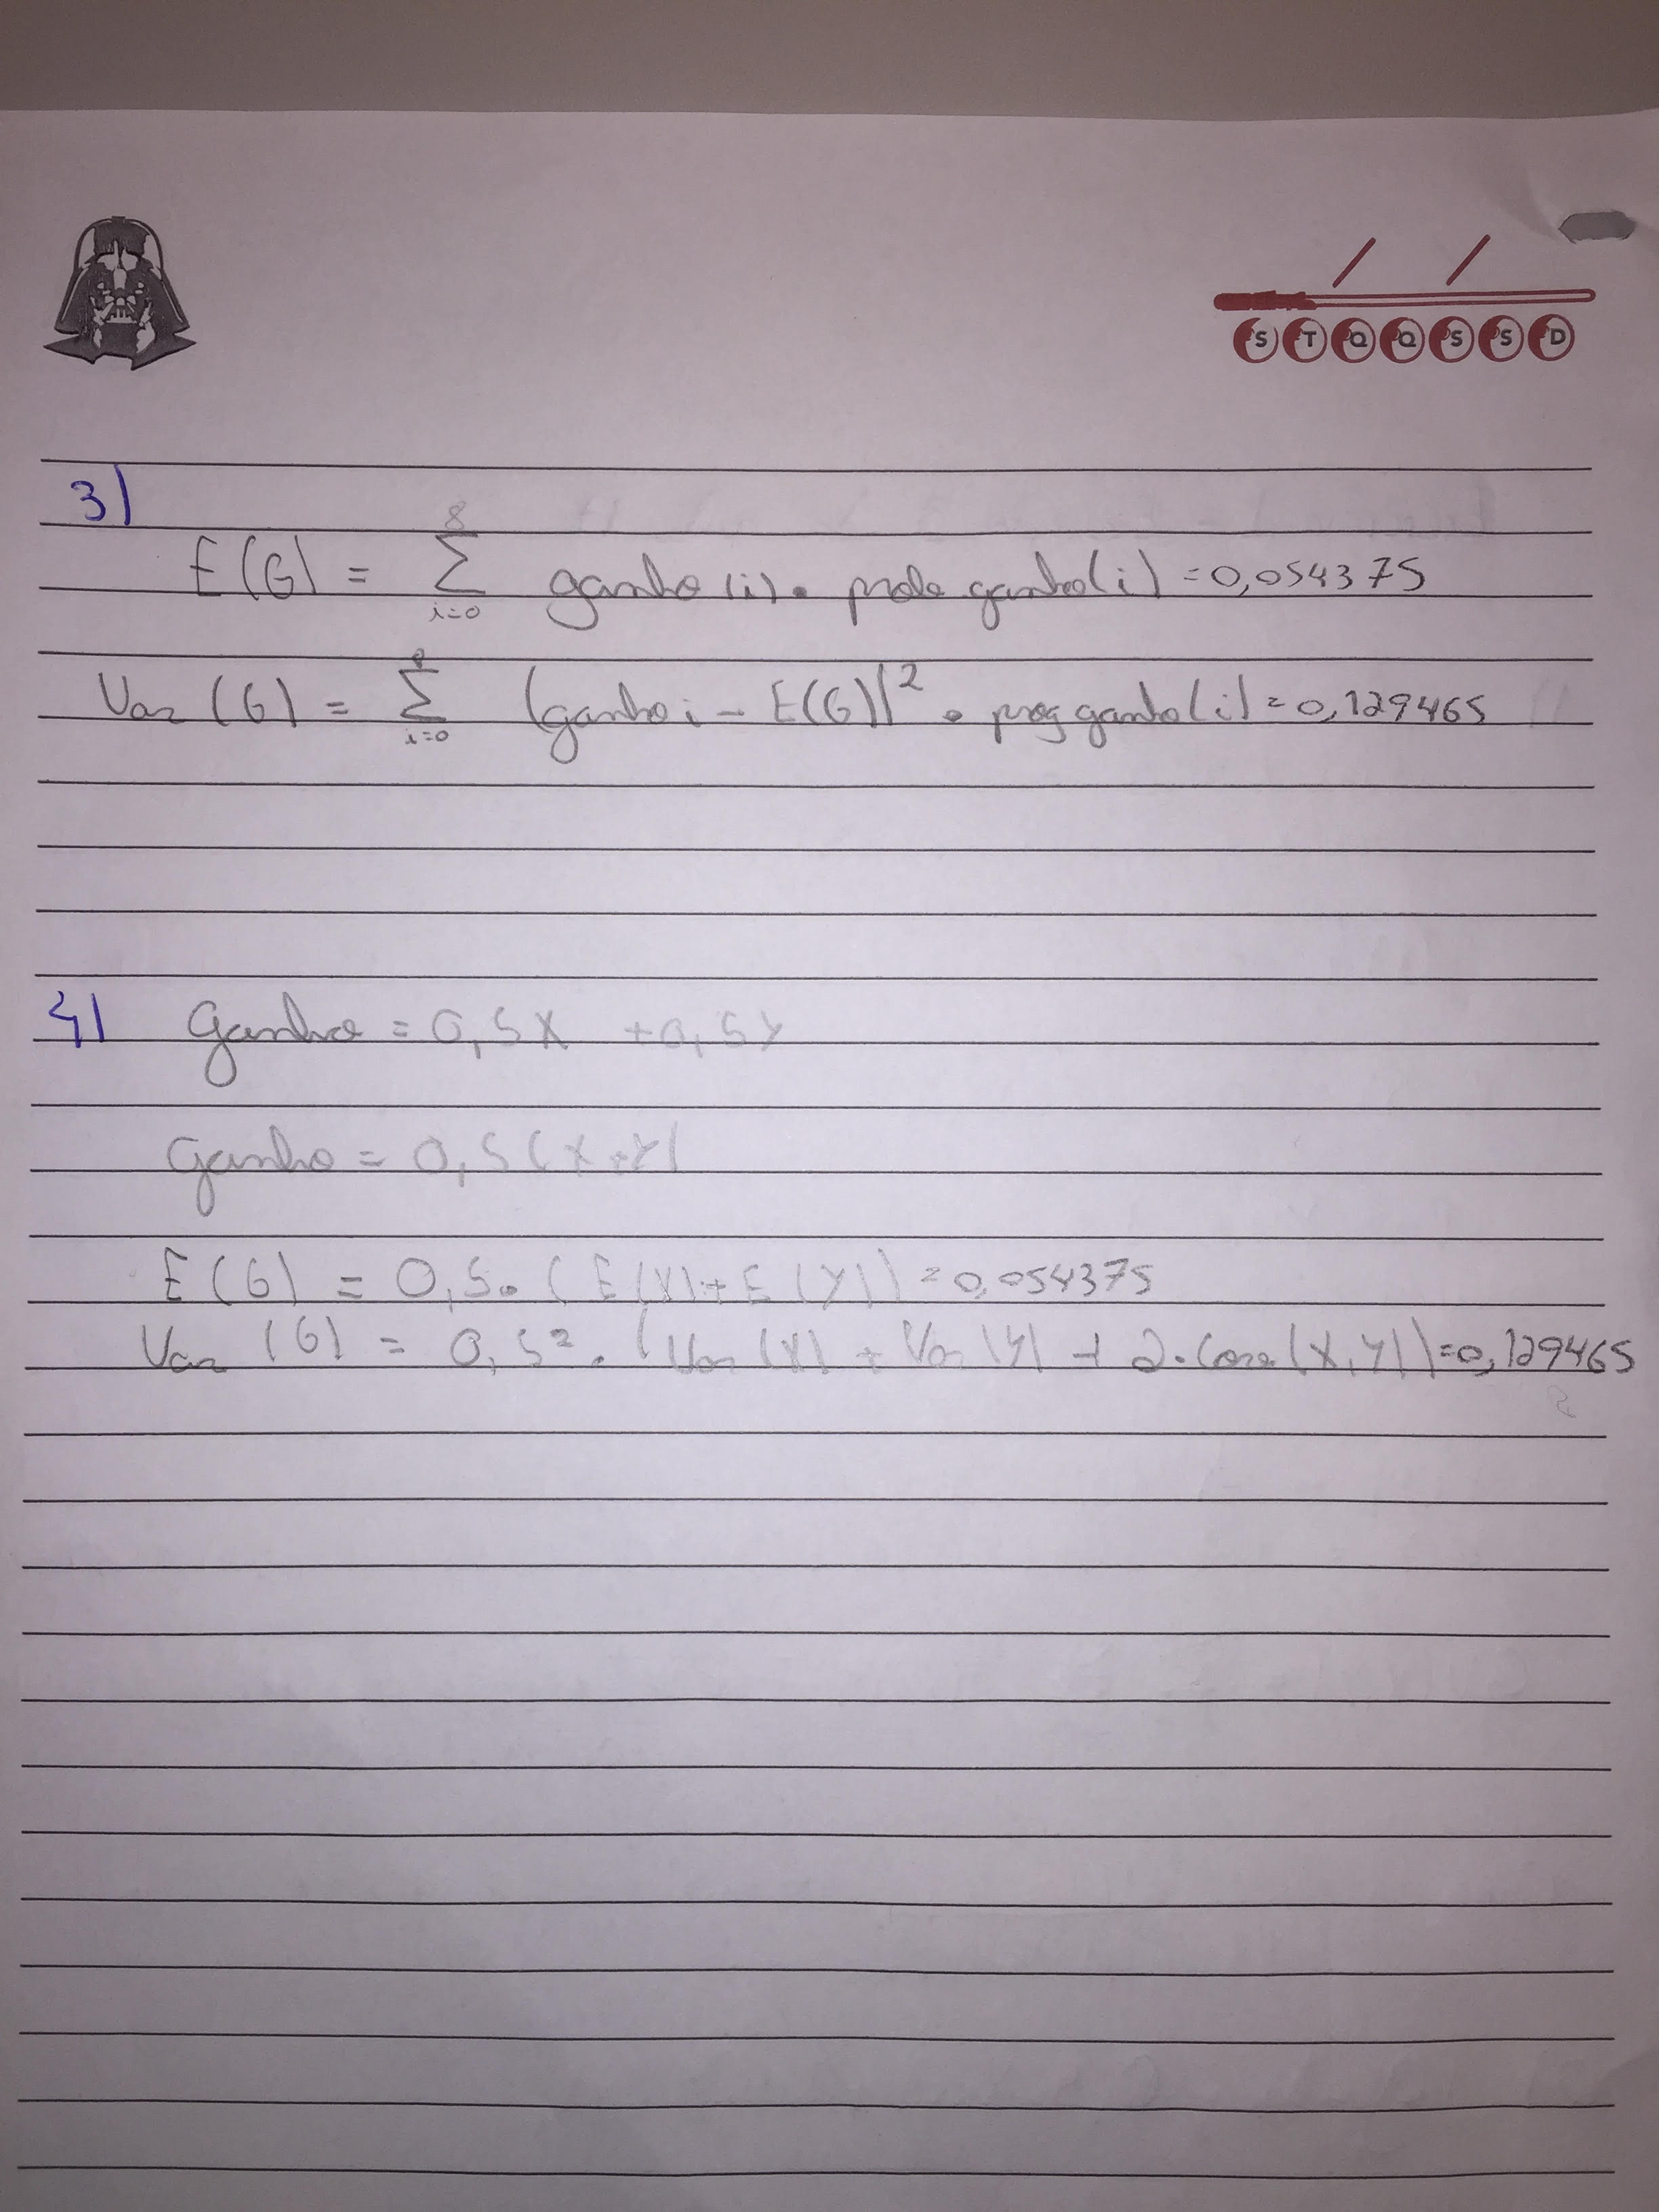 S T Q Q S S D
3)
8
E(G) = Σ ganho(i). prob ganho(i) = 0,054375
i=0
8
Var(G) = Σ (ganho i - E(G))² . prog ganho(i) = 0,129465
i=0
4) Ganho = 0,5X + 0,5Y
Ganho = 0,5(X+Y)
E(G) = 0,5.(E(X)+E(Y)) = 0,054375
Var(G) = 0,5².(Var(X) + Var(Y) + 2.Cova(X,Y)) = 0,129465